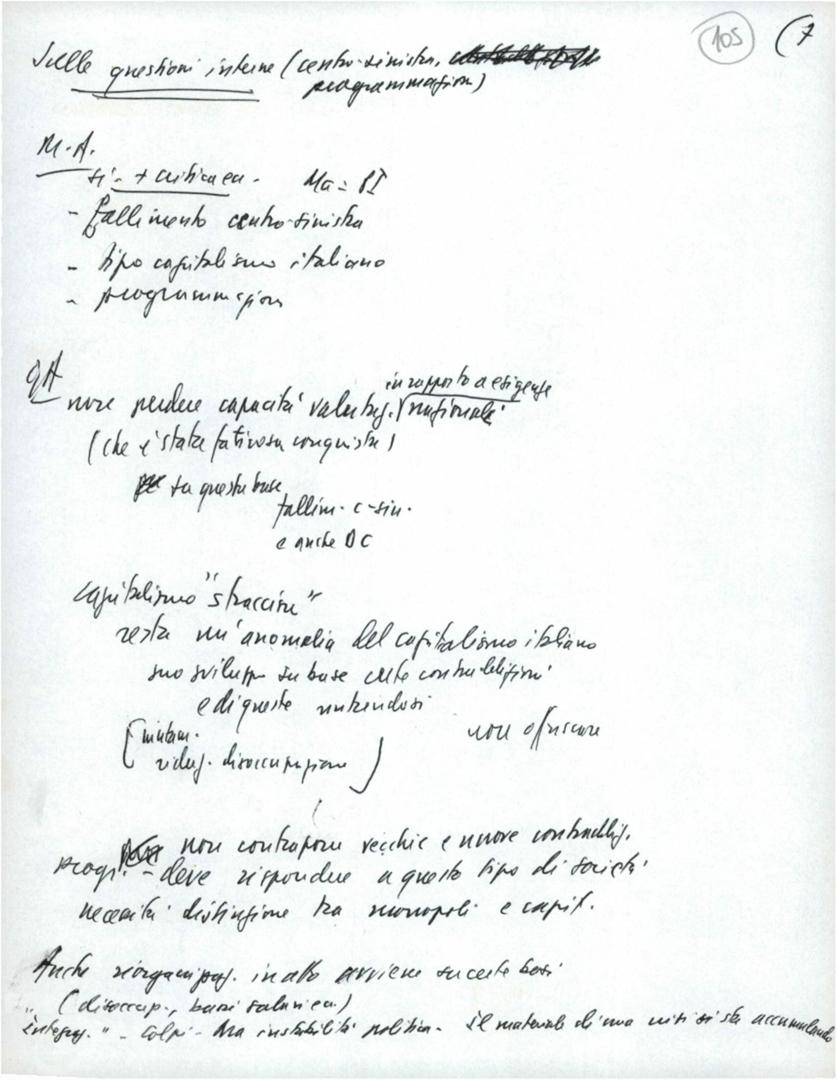 105 (7
Sulle questioni interne (centro-sinistra,
programmazion)
M.A.
si - + critica ec. - Ma = PI
- fallimento centro-sinistra
- tipo capitalismo italiano
- programmazion
in rapporto a esigenze
non perdere capacità valutaz. nazionale
(che è stata faticosa conquista)
su questa base
fallim. c-sin.
e anche DC
capitalismo "straccione"
resta un'anomalia del capitalismo italiano
suo sviluppo su base certe contraddizioni
e di queste nutrendosi
mutam. non offuscare
riduz. disoccupazione
non contrapporre vecchie e nuove contraddiz.
progr. - deve rispondere a questo tipo di società
necessità distinzione tra monopoli e capit.
Anche riorganizzaz. in atto avviene su certe basi
(disoccup., bassi salari ec.)
"integraz." - Colpi - Ma instabilità politica - il materiale di una crisi si sta accumulando